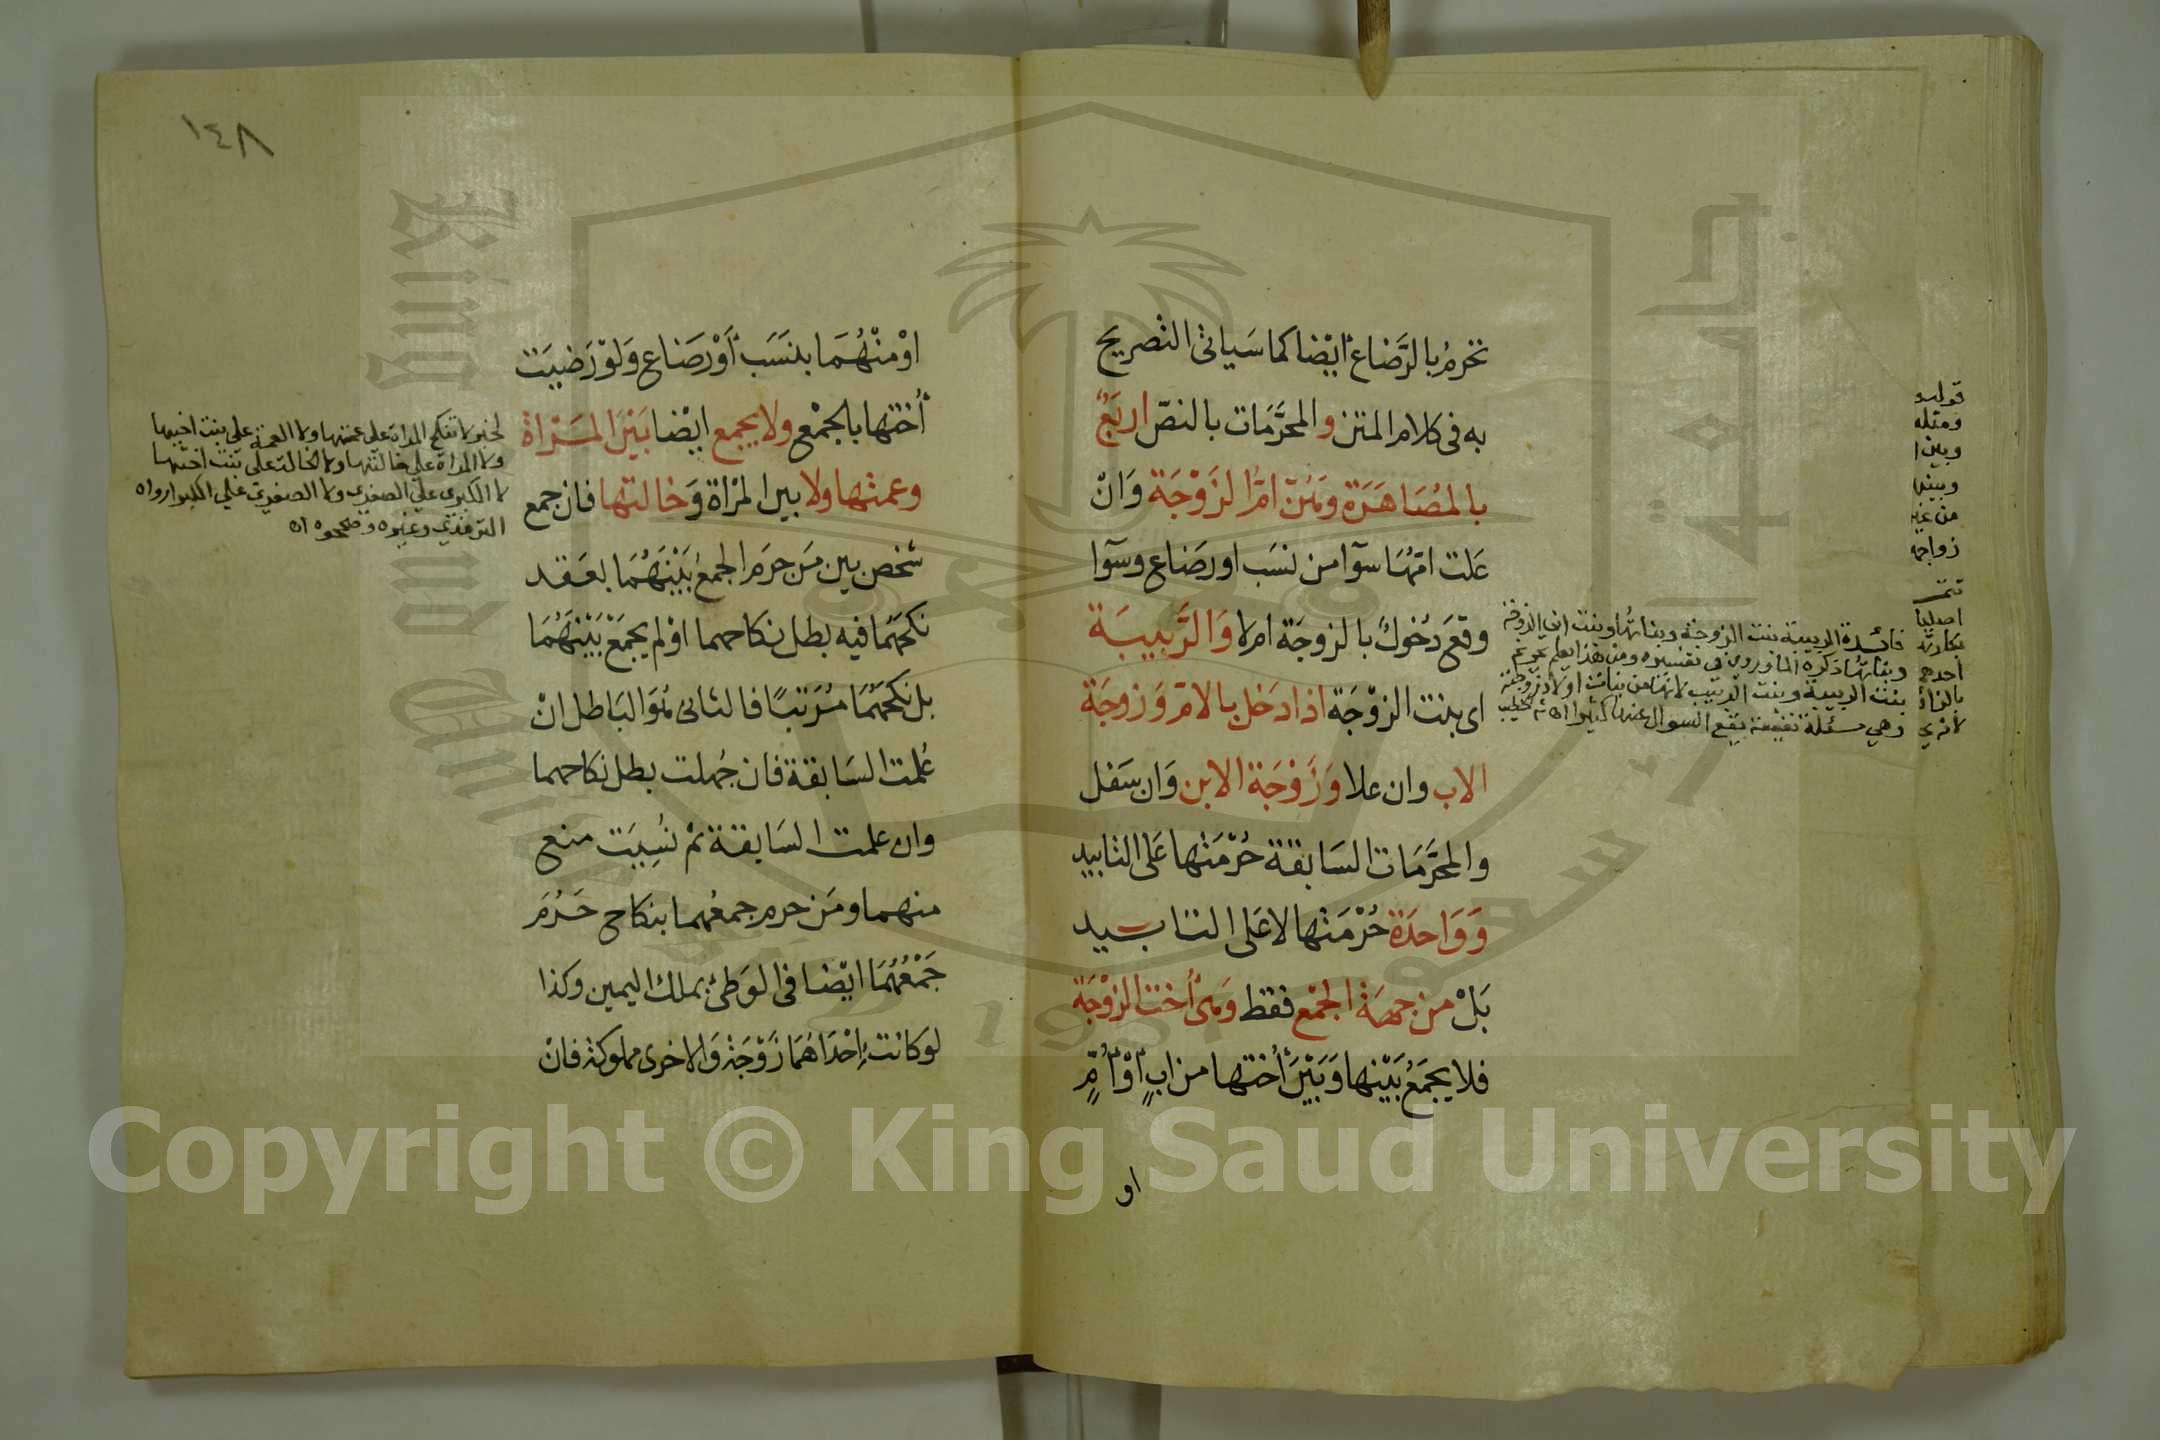 تحرم بالرَّضاع أيْضا كما سَياتى التصريح
به فى كلام المتن والمحرَّمَات بالنصّ اربَعٌ
بالمصَاهَرَة وَهُنّ امُّ الزَوْجَة وَانْ
عَلت امّهَا سوآا من نسَب اورضَاع وسوآا
وقعَ دُخولٌ بالزوجَة ام لا وَالرَّبيبَة
اى بنت الزوْجَة اذا دَخل بالامّ وَزوجَة
الاب وان علا وَزَوْجَة الابن وَان سَفل
والمحرَّمَات السَابقة حُرْمَتها عَلى التابيد
وَوَاحدَة حُرْمَتها لا عَلى التابيد
بَلْ من جهَة الجمْع فقط وَهىَ أختُ الزوْجَة
فلا يجمَعُ بَيْنها وَبَيْنَ أختها من ابٍ أوْ أمٍّ
او
قوله
ومثله
وبين ا
وبينها
من غير
زواجه
اصليا
احدهم
فائدة الربيبة بنت الزوجة وبناتها وبنت ابن الزوجة
وبناتها ذكره الماوردي في تفسيره ومن هذا يعلم تحريم
بنت الربيبة وبنت الربيب لانها من بنات اولاد زوجته
وهي مسئلة نفيسة يقع السوال عنها كثيرا اه خطيب
١٤٨
اوْ منْهُمَا بنسَب أوْ رضاع وَلوْ رَضيَت
أختها بالجمْع ولا يجمع ايْضا بَيْنَ المَرْاة
وعمتها ولا بين المرْاة وَخالتها فان جمع
شخص بين مَن حرَم الجمعُ بَيْنهُمَا بعَقد
نكحَهما فيه بطل نكاحهما اوْ لم يجمَعْ بَيْنهُمَا
بل نكحَهُمَا مُرَتبًا فالثانى هُوَ البَاطل انْ
عُلمت السَابقة فان جُهلت بطل نكاحهما
وان علمت السَابقة ثم نُسِيَت منع
منهما ومَن حرم جمعُهما بنكاح حَرُمَ
جَمْعُهُمَا ايْضا فى الوَطئ بملك اليمين وكذا
لوكانت إحْدَاهُمَا زَوْجَة وَالاخرى مملوكة فانْ
لخبر لا تنكح المراة على عمتها ولا العمة على بنت اخيها
ولا المراة على خالتها ولا الخالة على بنت اختها
لا الكبرى على الصغرى ولا الصغرى على الكبرا رواه
الترمذي وغيره وصححوه اه